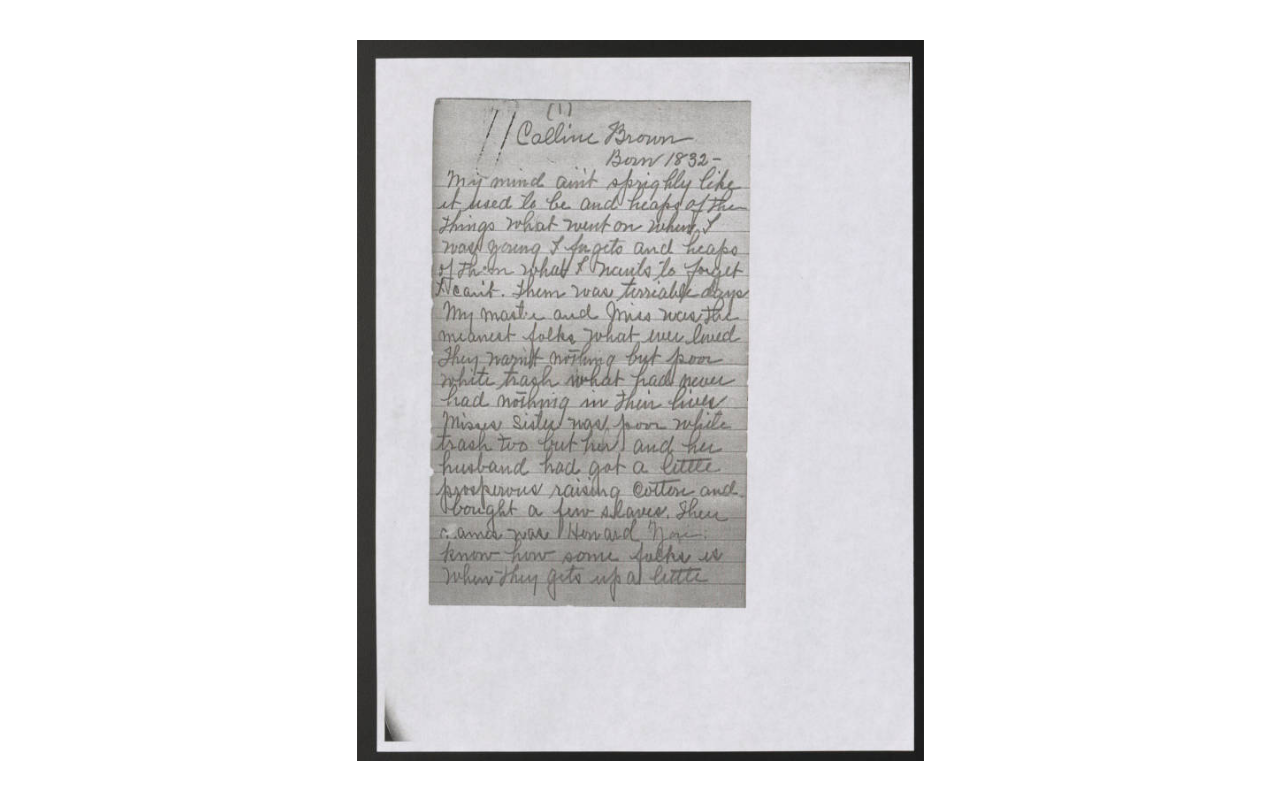 (1)
Calline Brown
Born 1832-
My mind ain't sprighly like
it used to be and heaps of the
things what went on when I
was young I fogets and heaps
of them what I wants to forget
I can't. Them was terriable days
My master and Miss was the
meanest folks what ever lived
They warn't nothing but poor
white trash what had never
had nothing in their lives
Misses Sister was poor white
trash too but her and her
husband had got a little
prosperous raising Cotton and
bought a few slaves. Their
name was Howard You
know how some folks is
when they gets up a little